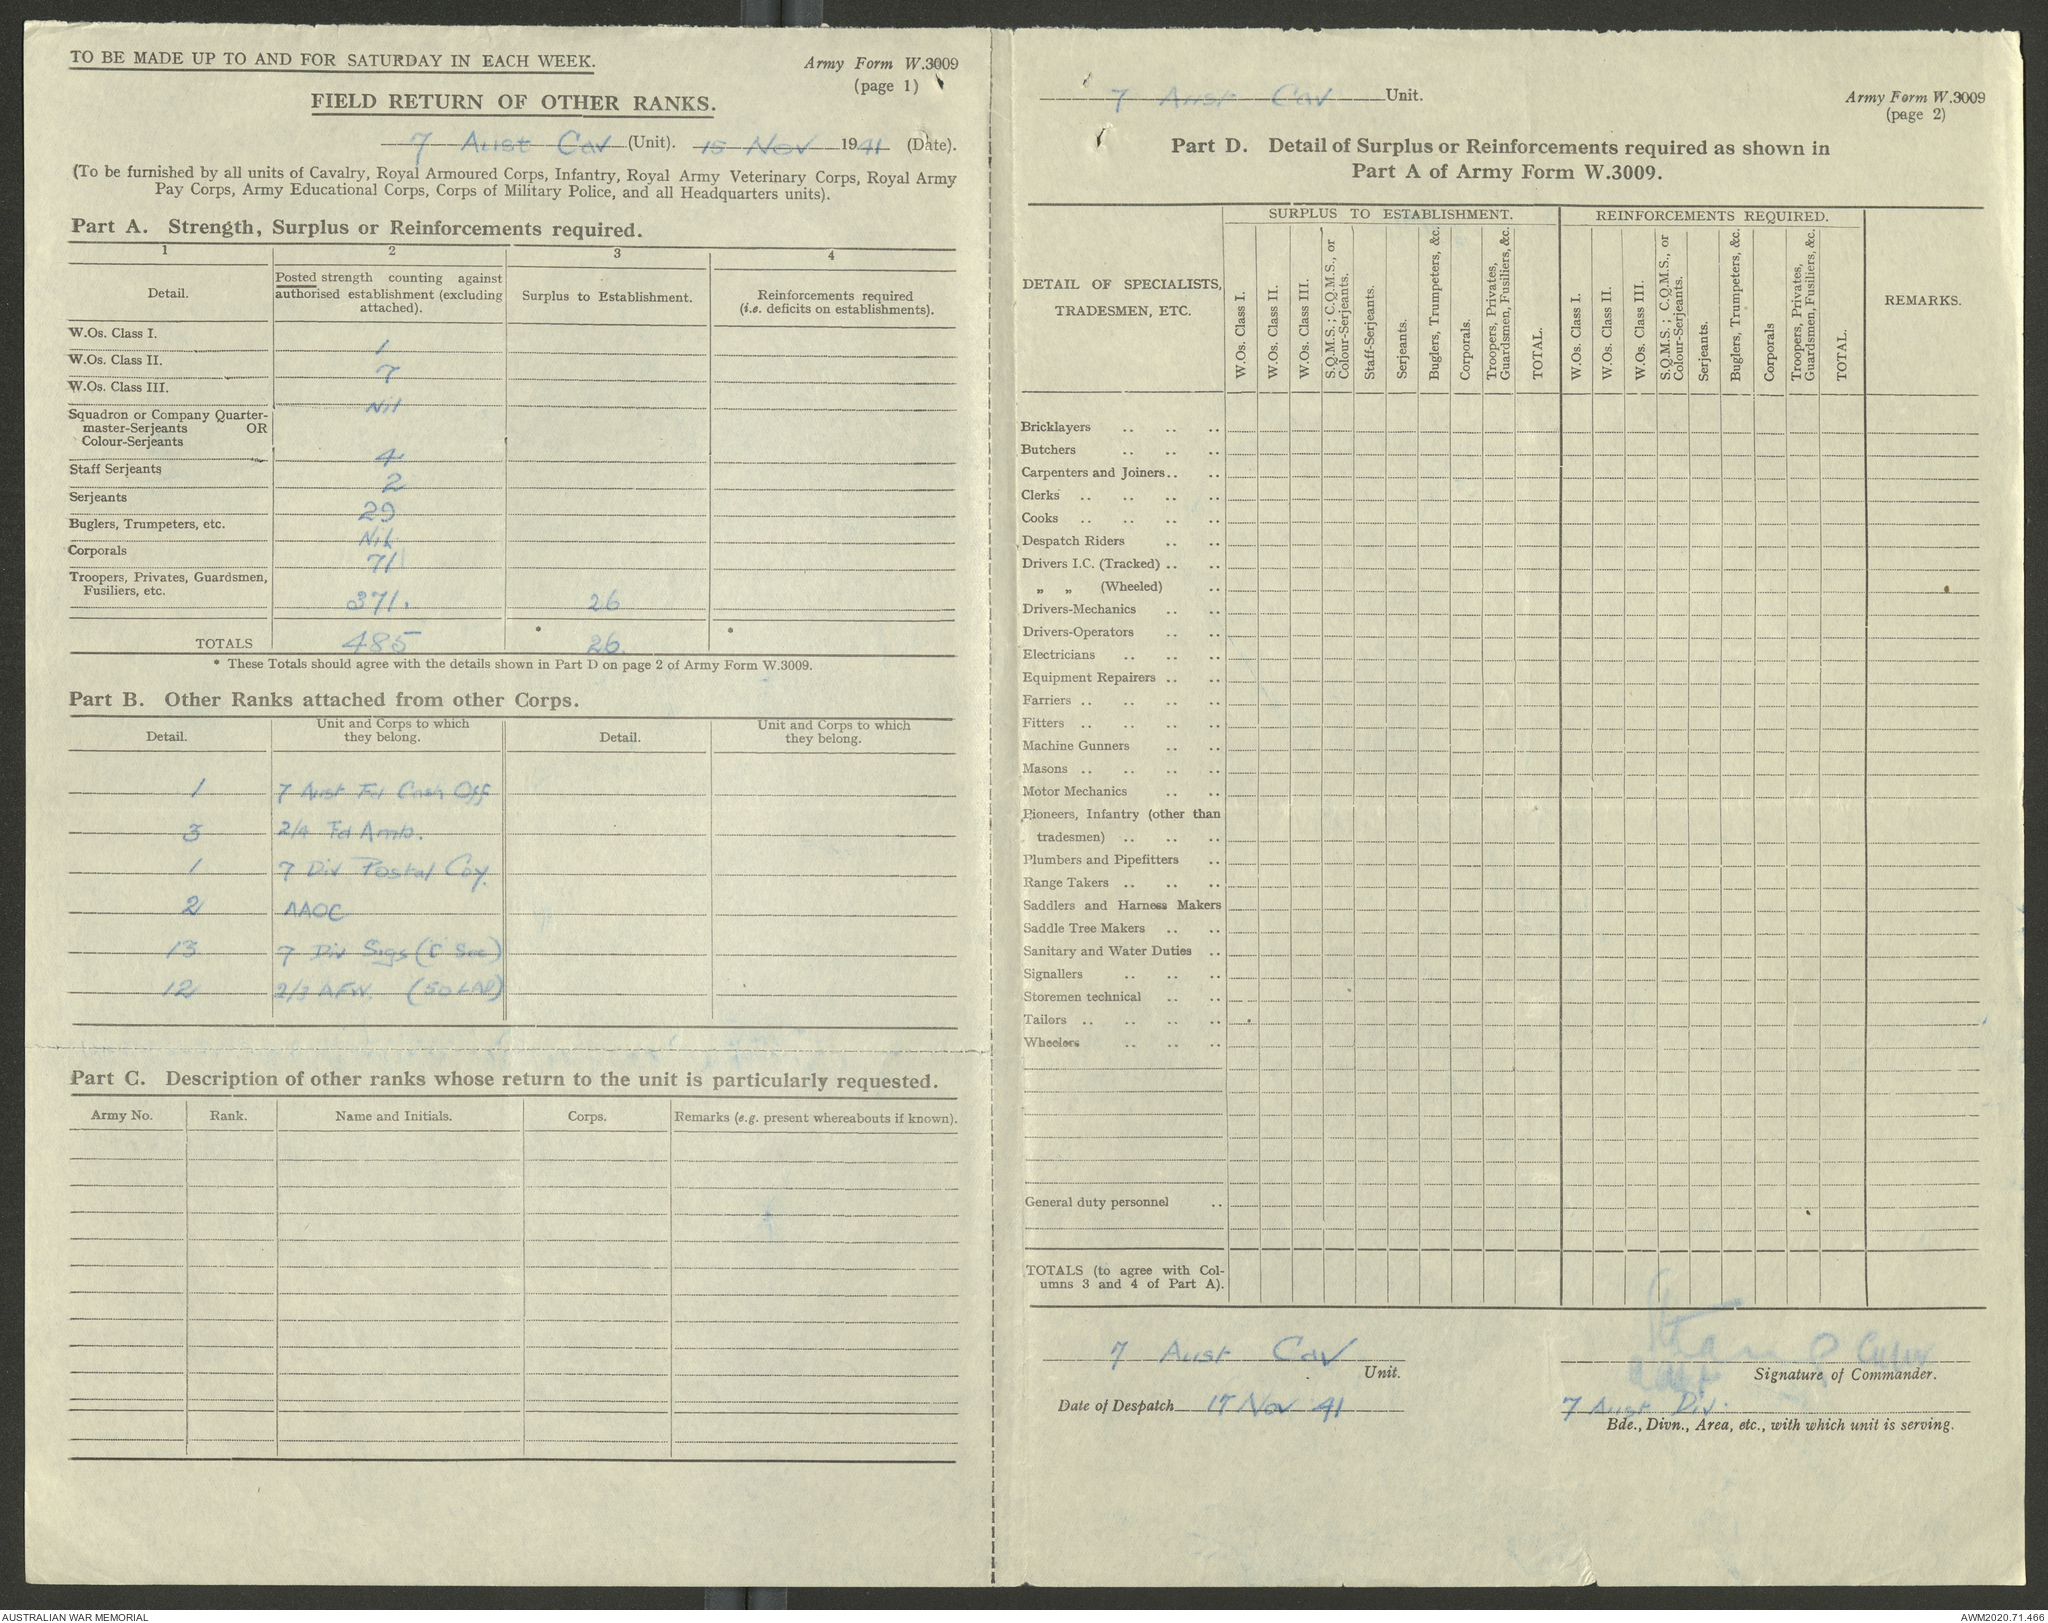 TO BE MADE UP TO AND FOR SATURDAY IN EACH WEEK.
Army Form W.3009
(page 1)
FIELD RETURN OF OTHER RANKS.
7 Aust Cav (Unit). 15 Nov 1941 (Date).
(To be furnished by all units of Cavalry, Royal Armoured Corps, Infantry, Royal Army Veterinary Corps, Royal Army
Pay Corps, Army Educational Corps, Corps of Military Police, and all Headquarters units).
Part A. Strength, Surplus or Reinforcements required.
1 2 3 4
Detail.
Posted strength counting against
authorised establishment (excluding
attached).
Surplus to Establishment.
Reinforcements required
(i.e. deficits on establishments).
W.Os. Class I. 1
W.Os. Class II. 7
W.Os. Class III. Nil
Squadron or Company Quarter-
master-Serjeants OR
Colour-Serjeants 4
Staff Serjeants 2
Serjeants 29
Buglers, Trumpeters, etc. Nil
Corporals 71
Troopers, Privates, Guardsmen,
Fusiliers, etc. 371. 26
TOTALS 485 * 26 *
* These Totals should agree with the details shown in Part D on page 2 of Army Form W.3009.
Part B. Other Ranks attached from other Corps.
Detail.
Unit and Corps to which
they belong.
Detail.
Unit and Corps to which
they belong.
1 7 Aust Fd Cash Off
3 2/4 Fd Amb.
1 7 Div Postal Coy.
2 AAOC
13 7 Div Sigs (C Sec)
12 2/3 AFW. (50 LAD)
Part C. Description of other ranks whose return to the unit is particularly requested.
Army No. Rank. Name and Initials. Corps. Remarks (e.g. present whereabouts if known).
7 Aust Cav Unit.
Army Form W.3009
(page 2)
Part D. Detail of Surplus or Reinforcements required as shown in
Part A of Army Form W.3009.
DETAIL OF SPECIALISTS,
TRADESMEN, ETC.
SURPLUS TO ESTABLISHMENT.
W.Os. Class I.
W.Os. Class II.
W.Os. Class III.
S.Q.M.S.; C.Q.M.S., or
Colour-Serjeants.
Staff-Serjeants.
Serjeants.
Buglers, Trumpeters, &c.
Corporals.
Troopers, Privates,
Guardsmen, Fusiliers, &c.
TOTAL.
REINFORCEMENTS REQUIRED.
W.Os. Class I.
W.Os. Class II.
W.Os. Class III.
S.Q.M.S.; C.Q.M.S., or
Colour-Serjeants.
Serjeants.
Buglers, Trumpeters, &c.
Corporals
Troopers, Privates,
Guardsmen, Fusiliers, &c.
TOTAL.
REMARKS.
Bricklayers .. .. ..
Butchers .. .. ..
Carpenters and Joiners .. ..
Clerks .. .. .. ..
Cooks .. .. .. ..
Despatch Riders .. ..
Drivers I.C. (Tracked) .. ..
„ „ (Wheeled) ..
Drivers-Mechanics .. ..
Drivers-Operators .. ..
Electricians .. .. ..
Equipment Repairers .. ..
Farriers .. .. .. ..
Fitters .. .. .. ..
Machine Gunners .. ..
Masons .. .. .. ..
Motor Mechanics .. ..
Pioneers, Infantry (other than
tradesmen) .. .. ..
Plumbers and Pipefitters ..
Range Takers .. .. ..
Saddlers and Harness Makers
Saddle Tree Makers .. ..
Sanitary and Water Duties ..
Signallers .. .. ..
Storemen technical .. ..
Tailors .. .. .. ..
Wheelers .. .. ..
General duty personnel ..
TOTALS (to agree with Col-
umns 3 and 4 of Part A).
7 Aust Cav
Unit.
Signature of Commander.
Date of Despatch 17 Nov 41
7 Aust Div.
Bde., Divn., Area, etc., with which unit is serving.
AUSTRALIAN WAR MEMORIAL
AWM2020.71.466